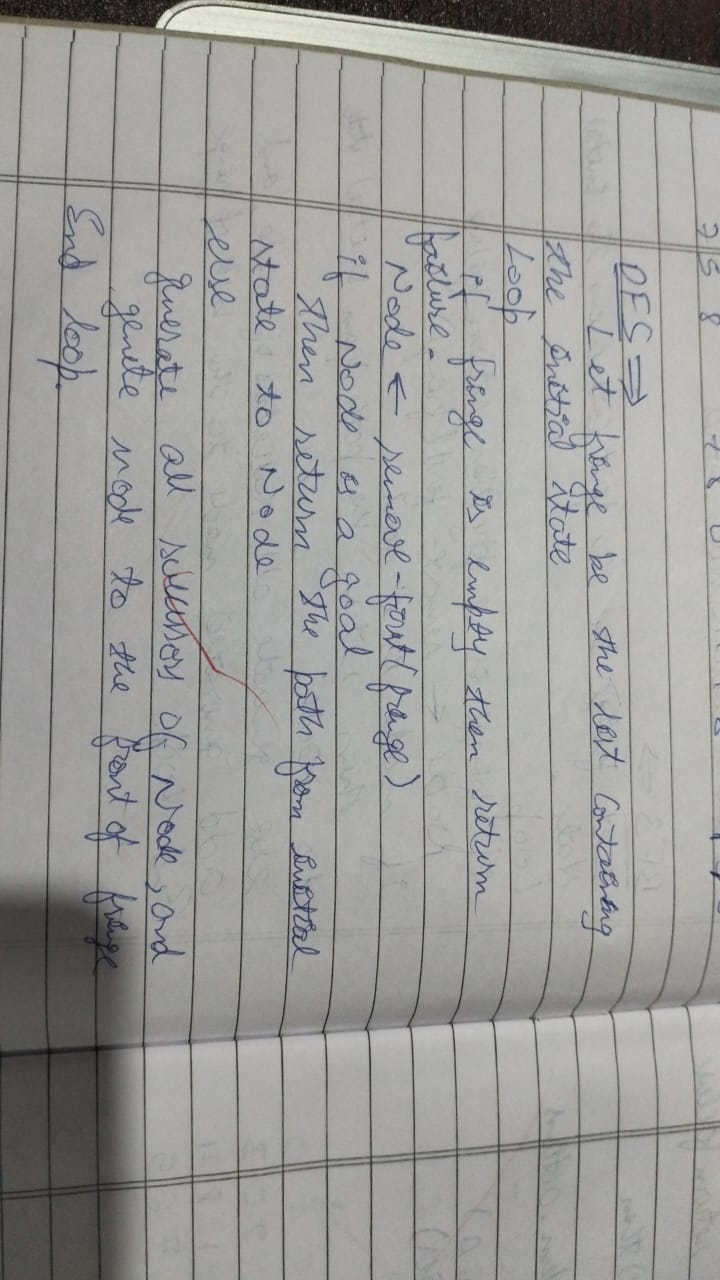 DFS ⇒
Let fringe be the list containing
the initial state
Loop
if fringe is empty then return
failure.
Node ← remove-first(fringe)
if Node is a goal
then return the path from initial
state to Node
else
generate all successors of Node, and
genete node to the front of fringe
End loop.